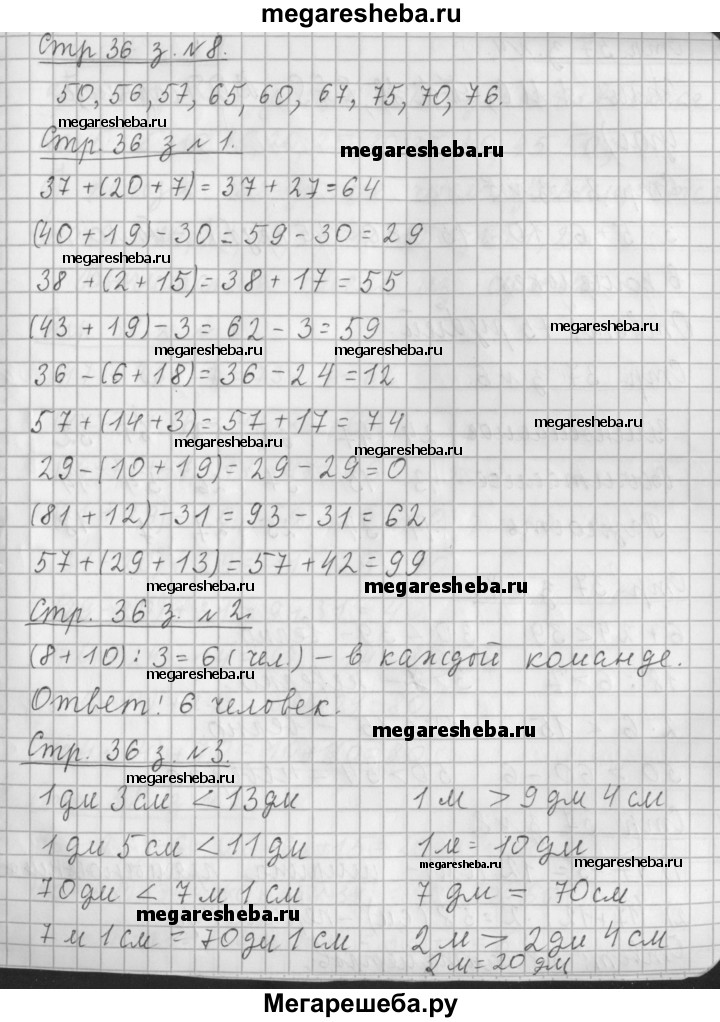 megaresheba.ru
Стр 36 з. №8.
50, 56, 57, 65, 60, 67, 75, 70, 76.
megaresheba.ru
Стр. 36 з №1.
megaresheba.ru
37 + (20 + 7) = 37 + 27 = 64
(40 + 19) - 30 = 59 - 30 = 29
megaresheba.ru
38 + (2 + 15) = 38 + 17 = 55
(43 + 19) - 3 = 62 - 3 = 59
megaresheba.ru
megaresheba.ru megaresheba.ru
36 - (6 + 18) = 36 - 24 = 12
57 + (14 + 3) = 57 + 17 = 74
megaresheba.ru
megaresheba.ru megaresheba.ru
29 - (10 + 19) = 29 - 29 = 0
(81 + 12) - 31 = 93 - 31 = 62
57 + (29 + 13) = 57 + 42 = 99
megaresheba.ru megaresheba.ru
Стр. 36 з. №2.
(8 + 10) : 3 = 6 (чел.) - в каждой команде.
megaresheba.ru
Ответ: 6 человек.
megaresheba.ru
Стр. 36 з. №3.
megaresheba.ru
1 дм 3 см < 13 дм 1 м > 9 дм 4 см
1 дм 5 см < 11 дм 1 м = 10 дм
megaresheba.ru megaresheba.ru
70 дм < 7 м 1 см 7 дм = 70 см
megaresheba.ru
7 м 1 см = 70 дм 1 см 2 м > 2 дм 4 см
2 м = 20 дм
Мегарешеба.ру